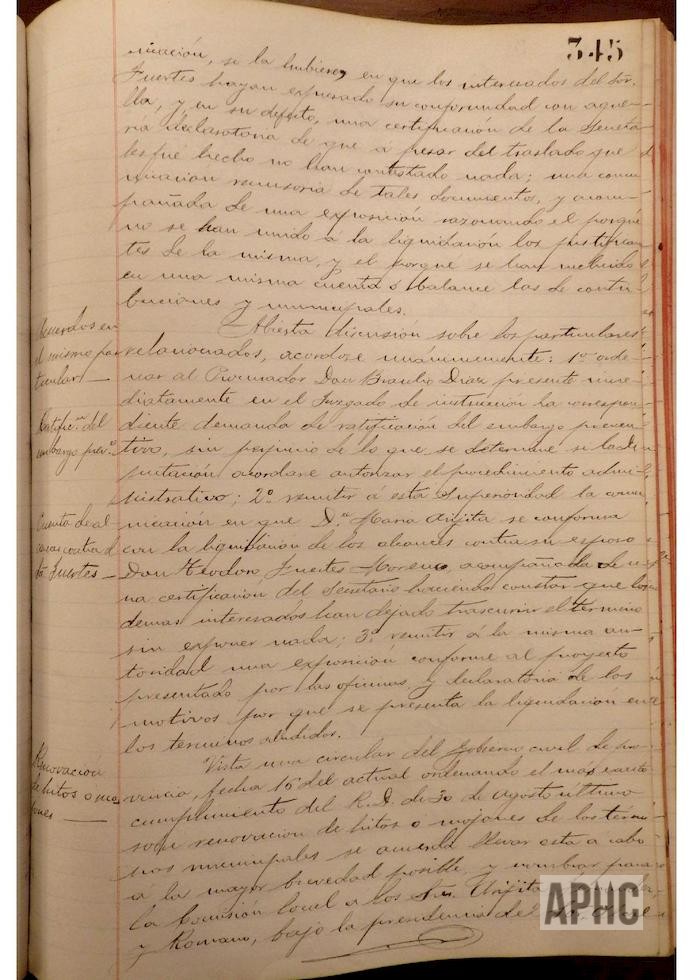 345
nicación, si la hubiere, en que los interesados del Sor.
Fuertes hayan expresado su conformidad con aque-
lla, y en su defecto, una certificación de la Secreta-
ria declaratoria de que a pesar del traslado que
les fué hecho no han contestado nada; una comu-
nicacion remisoria de tales documentos, y acom-
pañada de una exposicion razonando el porque
no se han unido á la liquidación los justifican-
tes de la misma, y el porque se han incluido
en una misma cuenta ó balance las de contri-
buciones y municipales.
Acuerdos en
el mismo par
ticular —
Abierta discusión sobre los particulares
relacionados, acordose unánimemente: 1º orde-
nar al Procurador Don Braulio Diaz presente inme-
diatamente en el Juzgado de instrucción la correspon-
Ratific.on del
embargo prev.o
diente demanda de ratificación del embargo preven-
tivo, sin perjuicio de lo que se determine si la Di-
putación acordare autorizar el procedimiento admi-
nistrativo; 2º remitir á esta Superioridad la comu-
Cuenta de al
cances contra d
ta Fuertes —
nicacion en que D.a Maria Arijita se conforma
con la liquidacion de los alcances contra su esposo
Don Teodoro Fuertes Moreno, acompañada de u-
na certificación del Secretario haciendo constar que los
demas interesados han dejado trascurrir el término
sin exponer nada; 3º remitir á la misma au-
toridad una exposición conforme al proyecto
presentado por las oficinas, y declaratoria de los
motivos por que se presenta la liquidacion en
los terminos aludidos.
Renovación
de hitos o mo
jones —
Vista una circular del Gobierno civil de pro-
vincia, fecha 15 del actual ordenando el más exacto
cumplimiento del R.D. de 30 de Agosto ultimo
sobre renovacion de hitos ó mojones de los térmi-
nos municipales se acuerda llevar esta a cabo
á la mayor brevedad posible, y nombrar para
la Comisión local a los Sres. Arijita
y Romano, bajo la presidencia del Sr. Alcal-
APHC